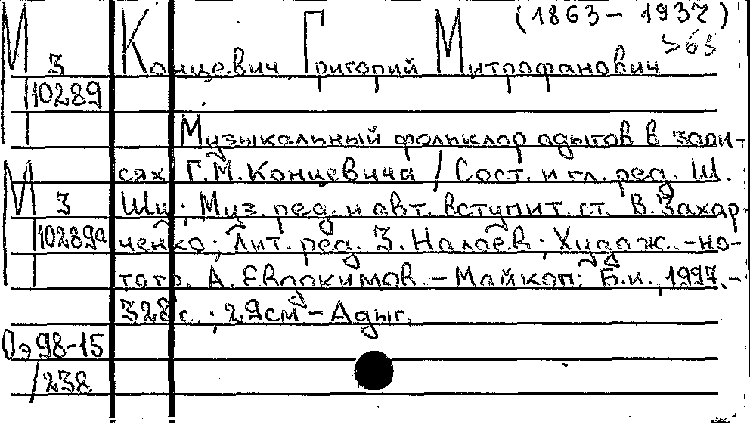 (1863-1937)
М 3 Концевич Григорий Митрофанович
10289
Музыкальный фольклор адыгов в запи-
сях Г.М. Концевича / Сост. и гл. ред. Ш.
М 3 Шу; Муз. ред. и авт. вступит. ст. В. Захар-
10289а ченко; Лит. ред. З. Налоев; Худож.-но-
тогр. А. Евдокимов. - Майкоп: Б.и., 1997. -
328 с.; 29см - Адыг.
98-15
/238